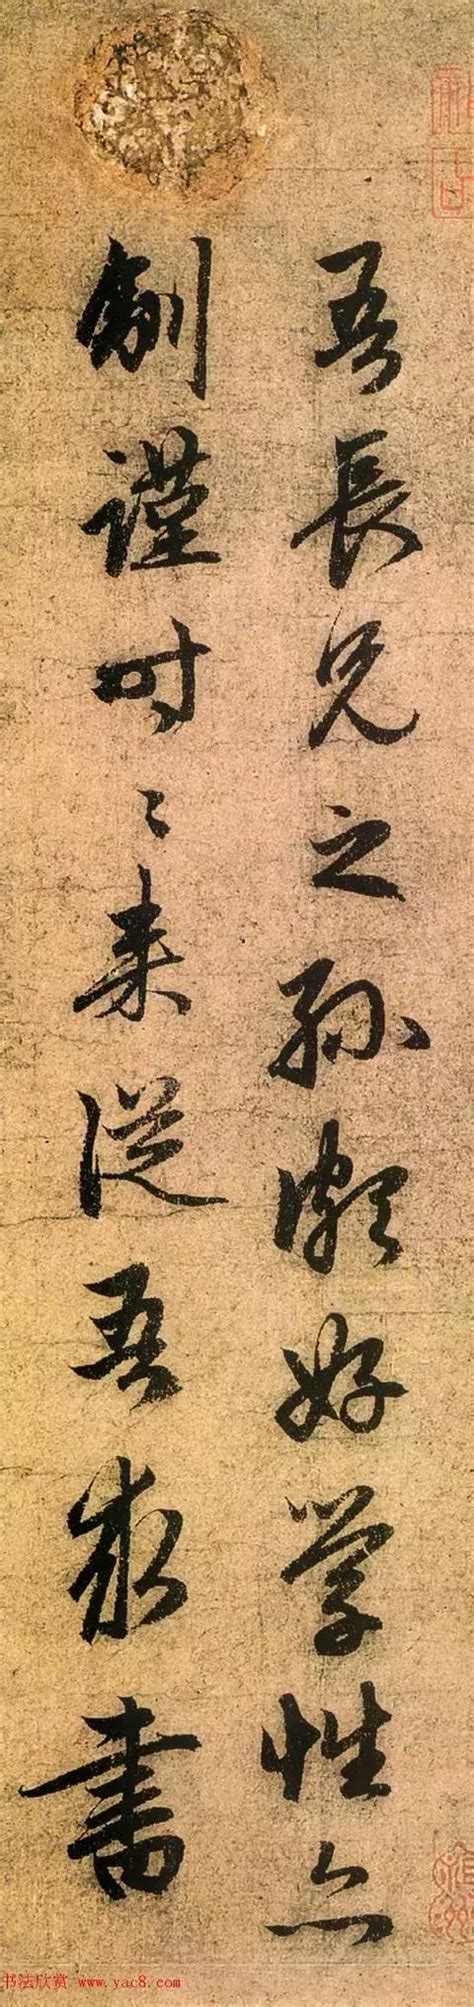 吾長兄之孫頗好学性亦
剛謹時〻来從吾求書
书法欣赏 www.yac8.com